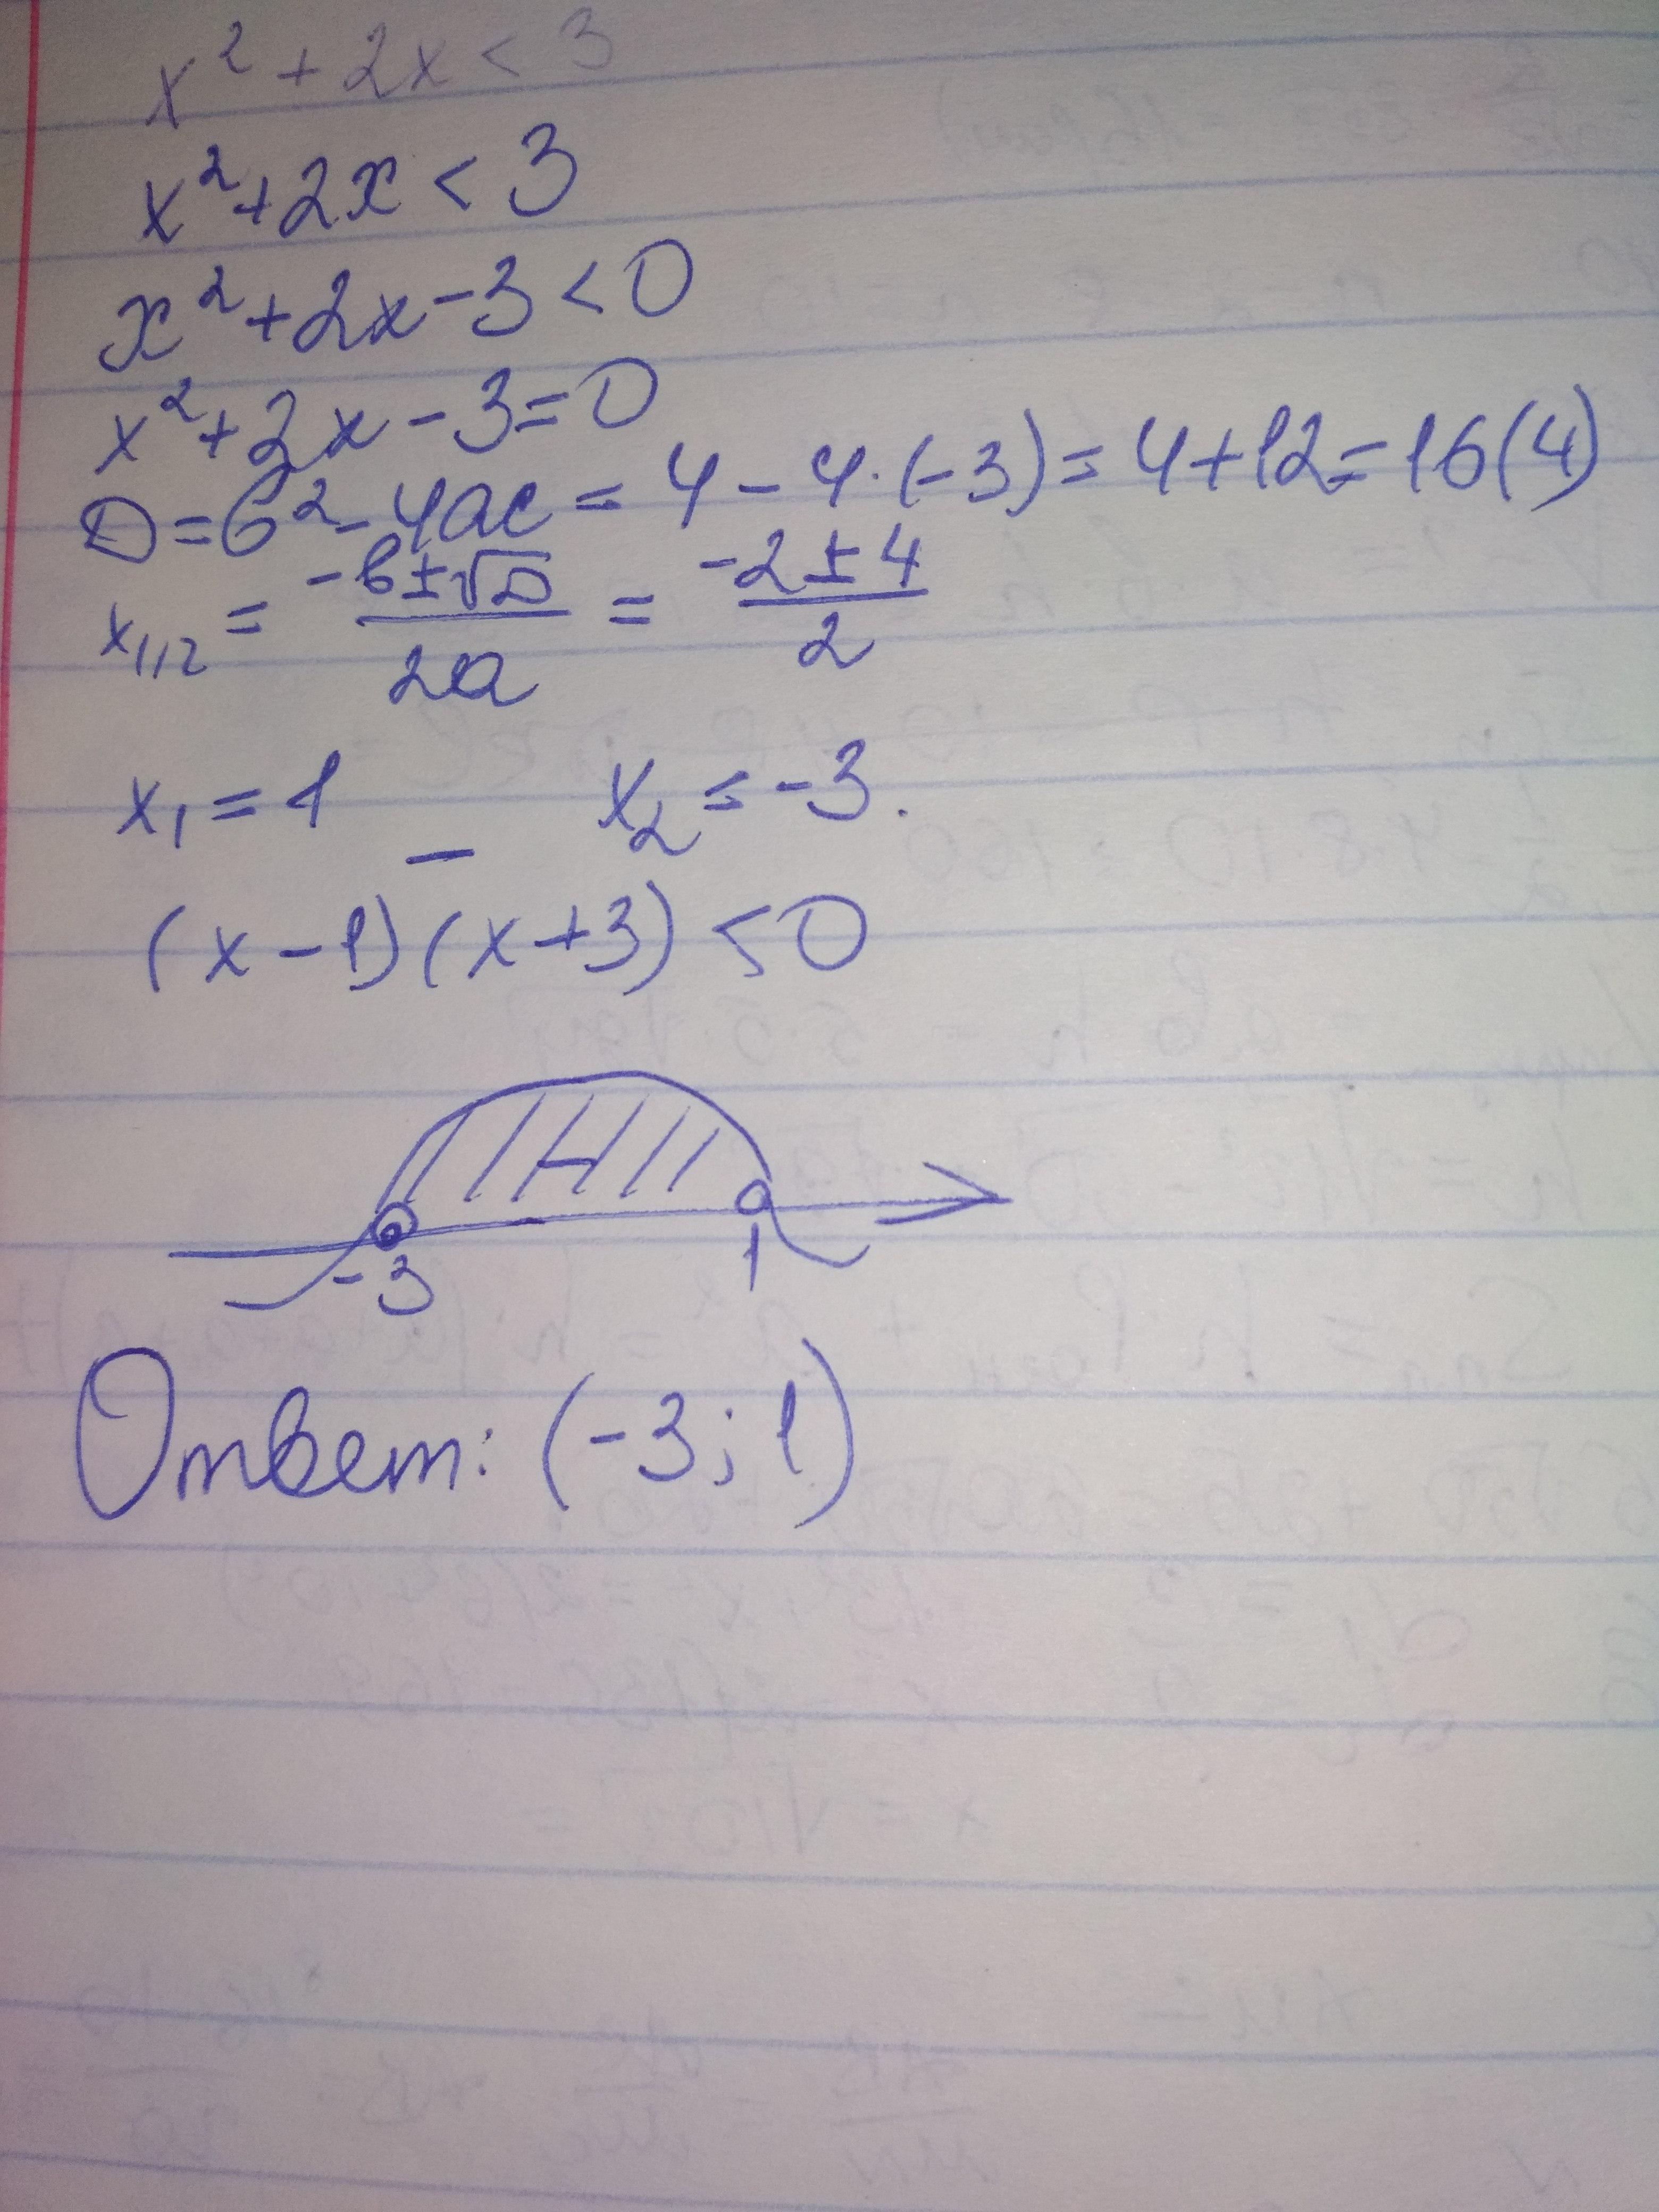 x² + 2x < 3
x² + 2x < 3
x² + 2x - 3 < 0
x² + 2x - 3 = 0
D = b² - 4ac = 4 - 4·(-3) = 4 + 12 = 16 (4)
x₁,₂ = (-b ± √D)/(2a) = (-2 ± 4)/2
x₁ = 1 x₂ = -3.
(x - 1)(x + 3) < 0
-3 1
Ответ: (-3; 1)